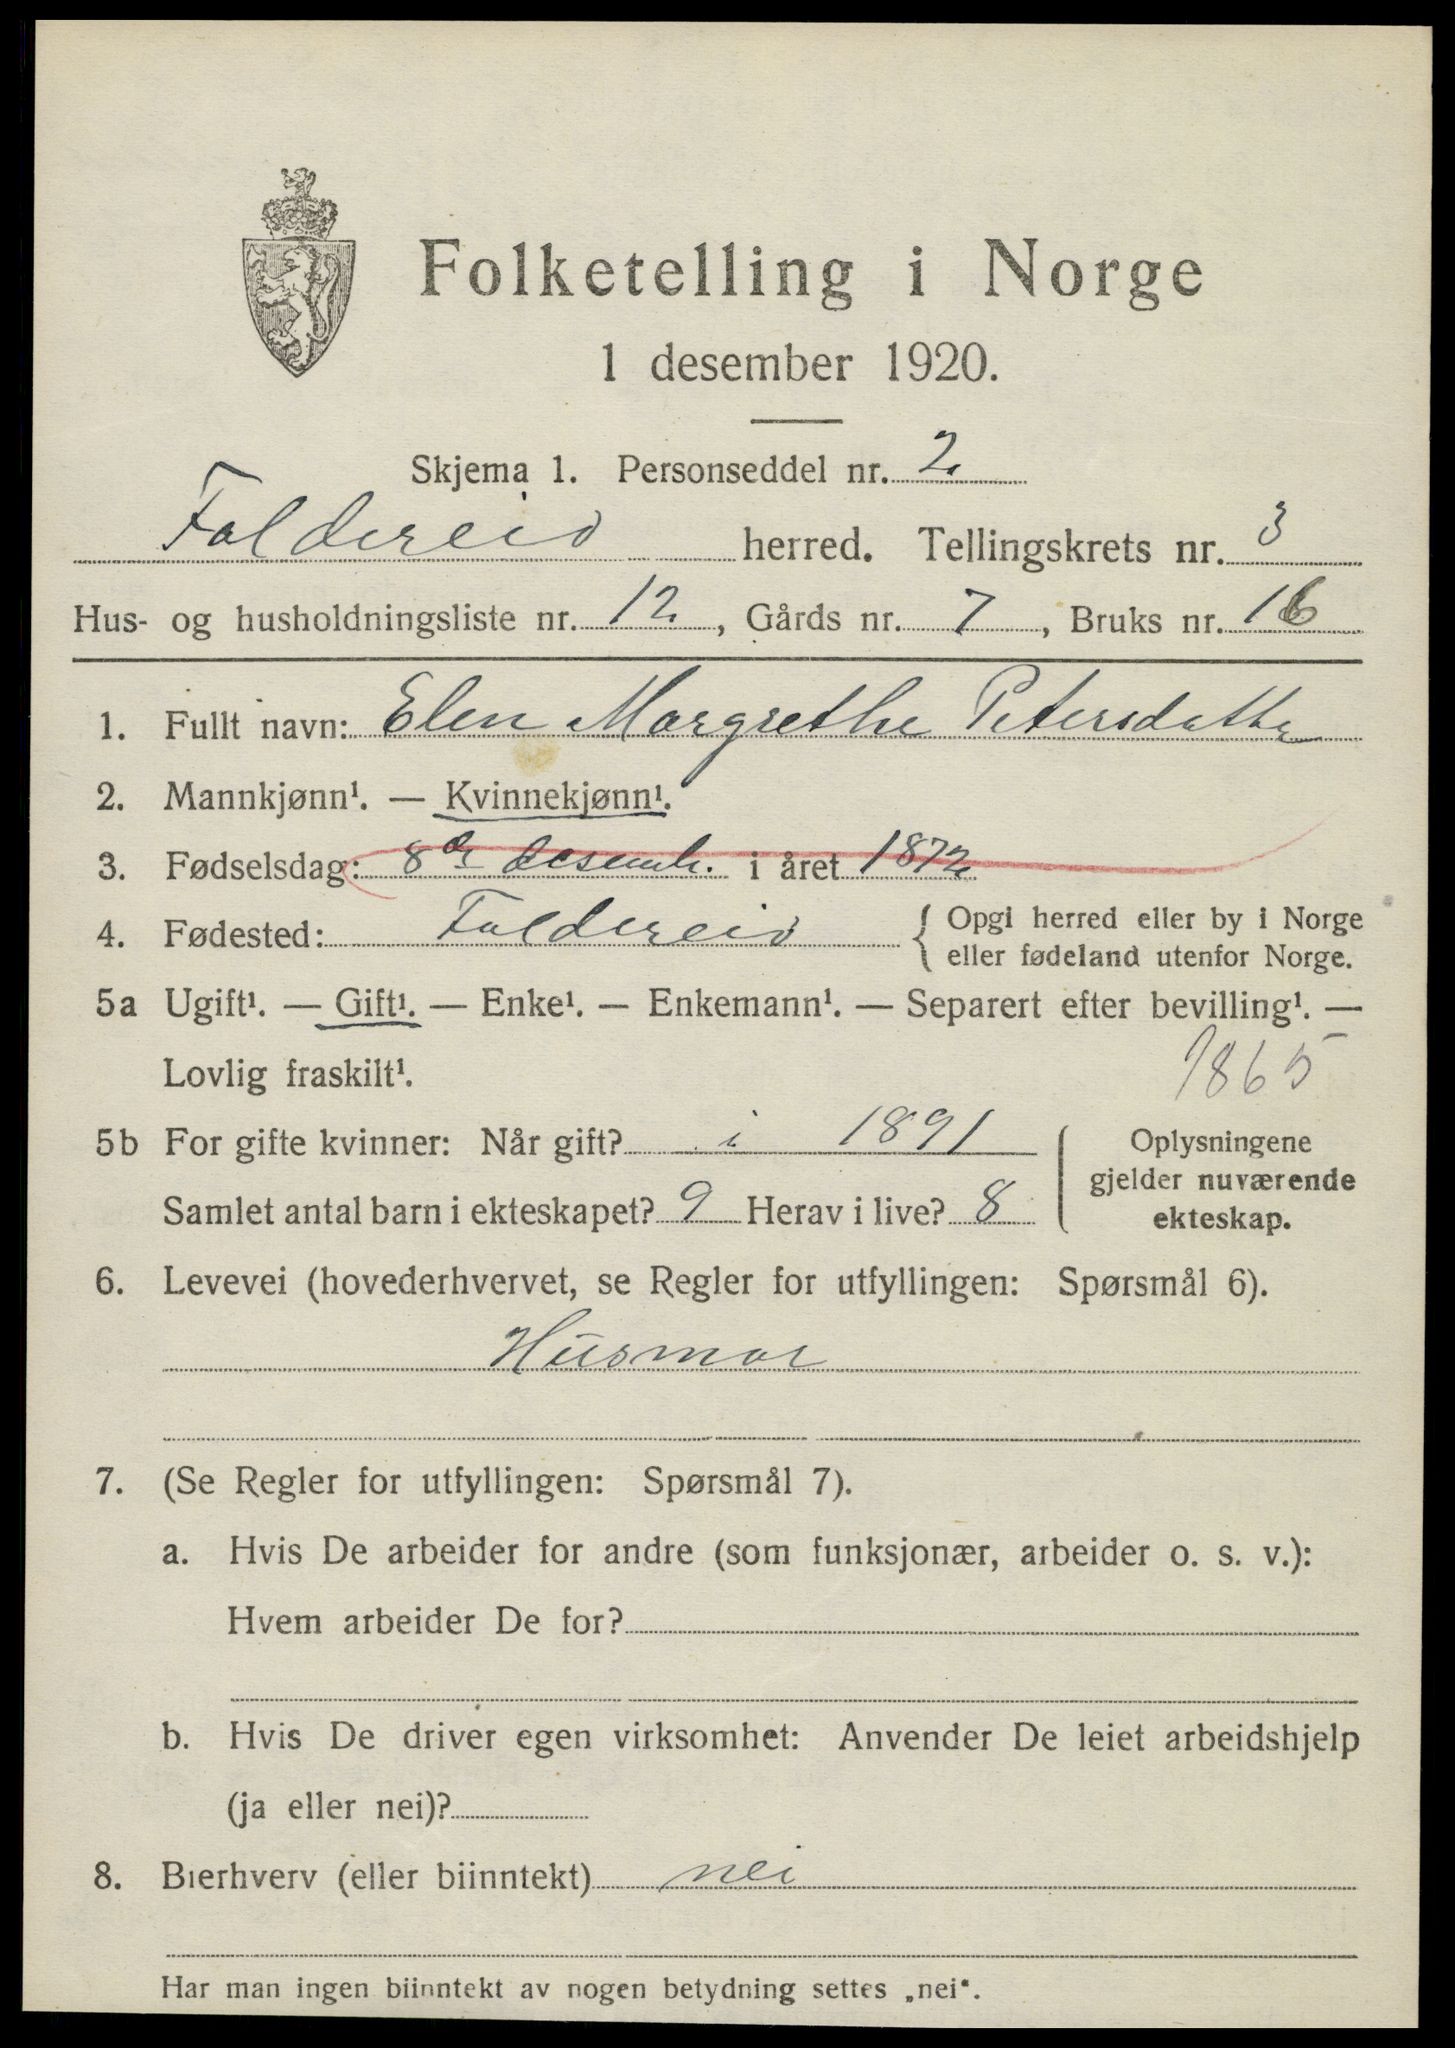 Folketelling i Norge
1 desember 1920.
Skjema 1. Personseddel nr. 2
Foldereid herred. Tellingskrets nr. 3
Hus- og husholdningsliste nr. 12, Gårds nr. 7, Bruks nr. 16
1. Fullt navn: Elen Margrethe Petersdatter
2. Mannkjønn¹. — Kvinnekjønn¹.
3. Fødselsdag: 8de desemb. i året 1872
4. Fødested: Foldereid { Opgi herred eller by i Norge
eller fødeland utenfor Norge.
5a Ugift¹. — Gift¹. — Enke¹. — Enkemann¹. — Separert efter bevilling¹. —
Lovlig fraskilt¹. 1865
5b For gifte kvinner: Når gift? i 1891
Samlet antal barn i ekteskapet? 9 Herav i live? 8
Oplysningene
gjelder nuværende
ekteskap.
6. Levevei (hovederhvervet, se Regler for utfyllingen: Spørsmål 6).
Husmor
7. (Se Regler for utfyllingen: Spørsmål 7).
a. Hvis De arbeider for andre (som funksjonær, arbeider o. s. v.):
Hvem arbeider De for?
b. Hvis De driver egen virksomhet: Anvender De leiet arbeidshjelp
(ja eller nei)?
8. Bierhverv (eller biinntekt) nei
Har man ingen biinntekt av nogen betydning settes „nei“.